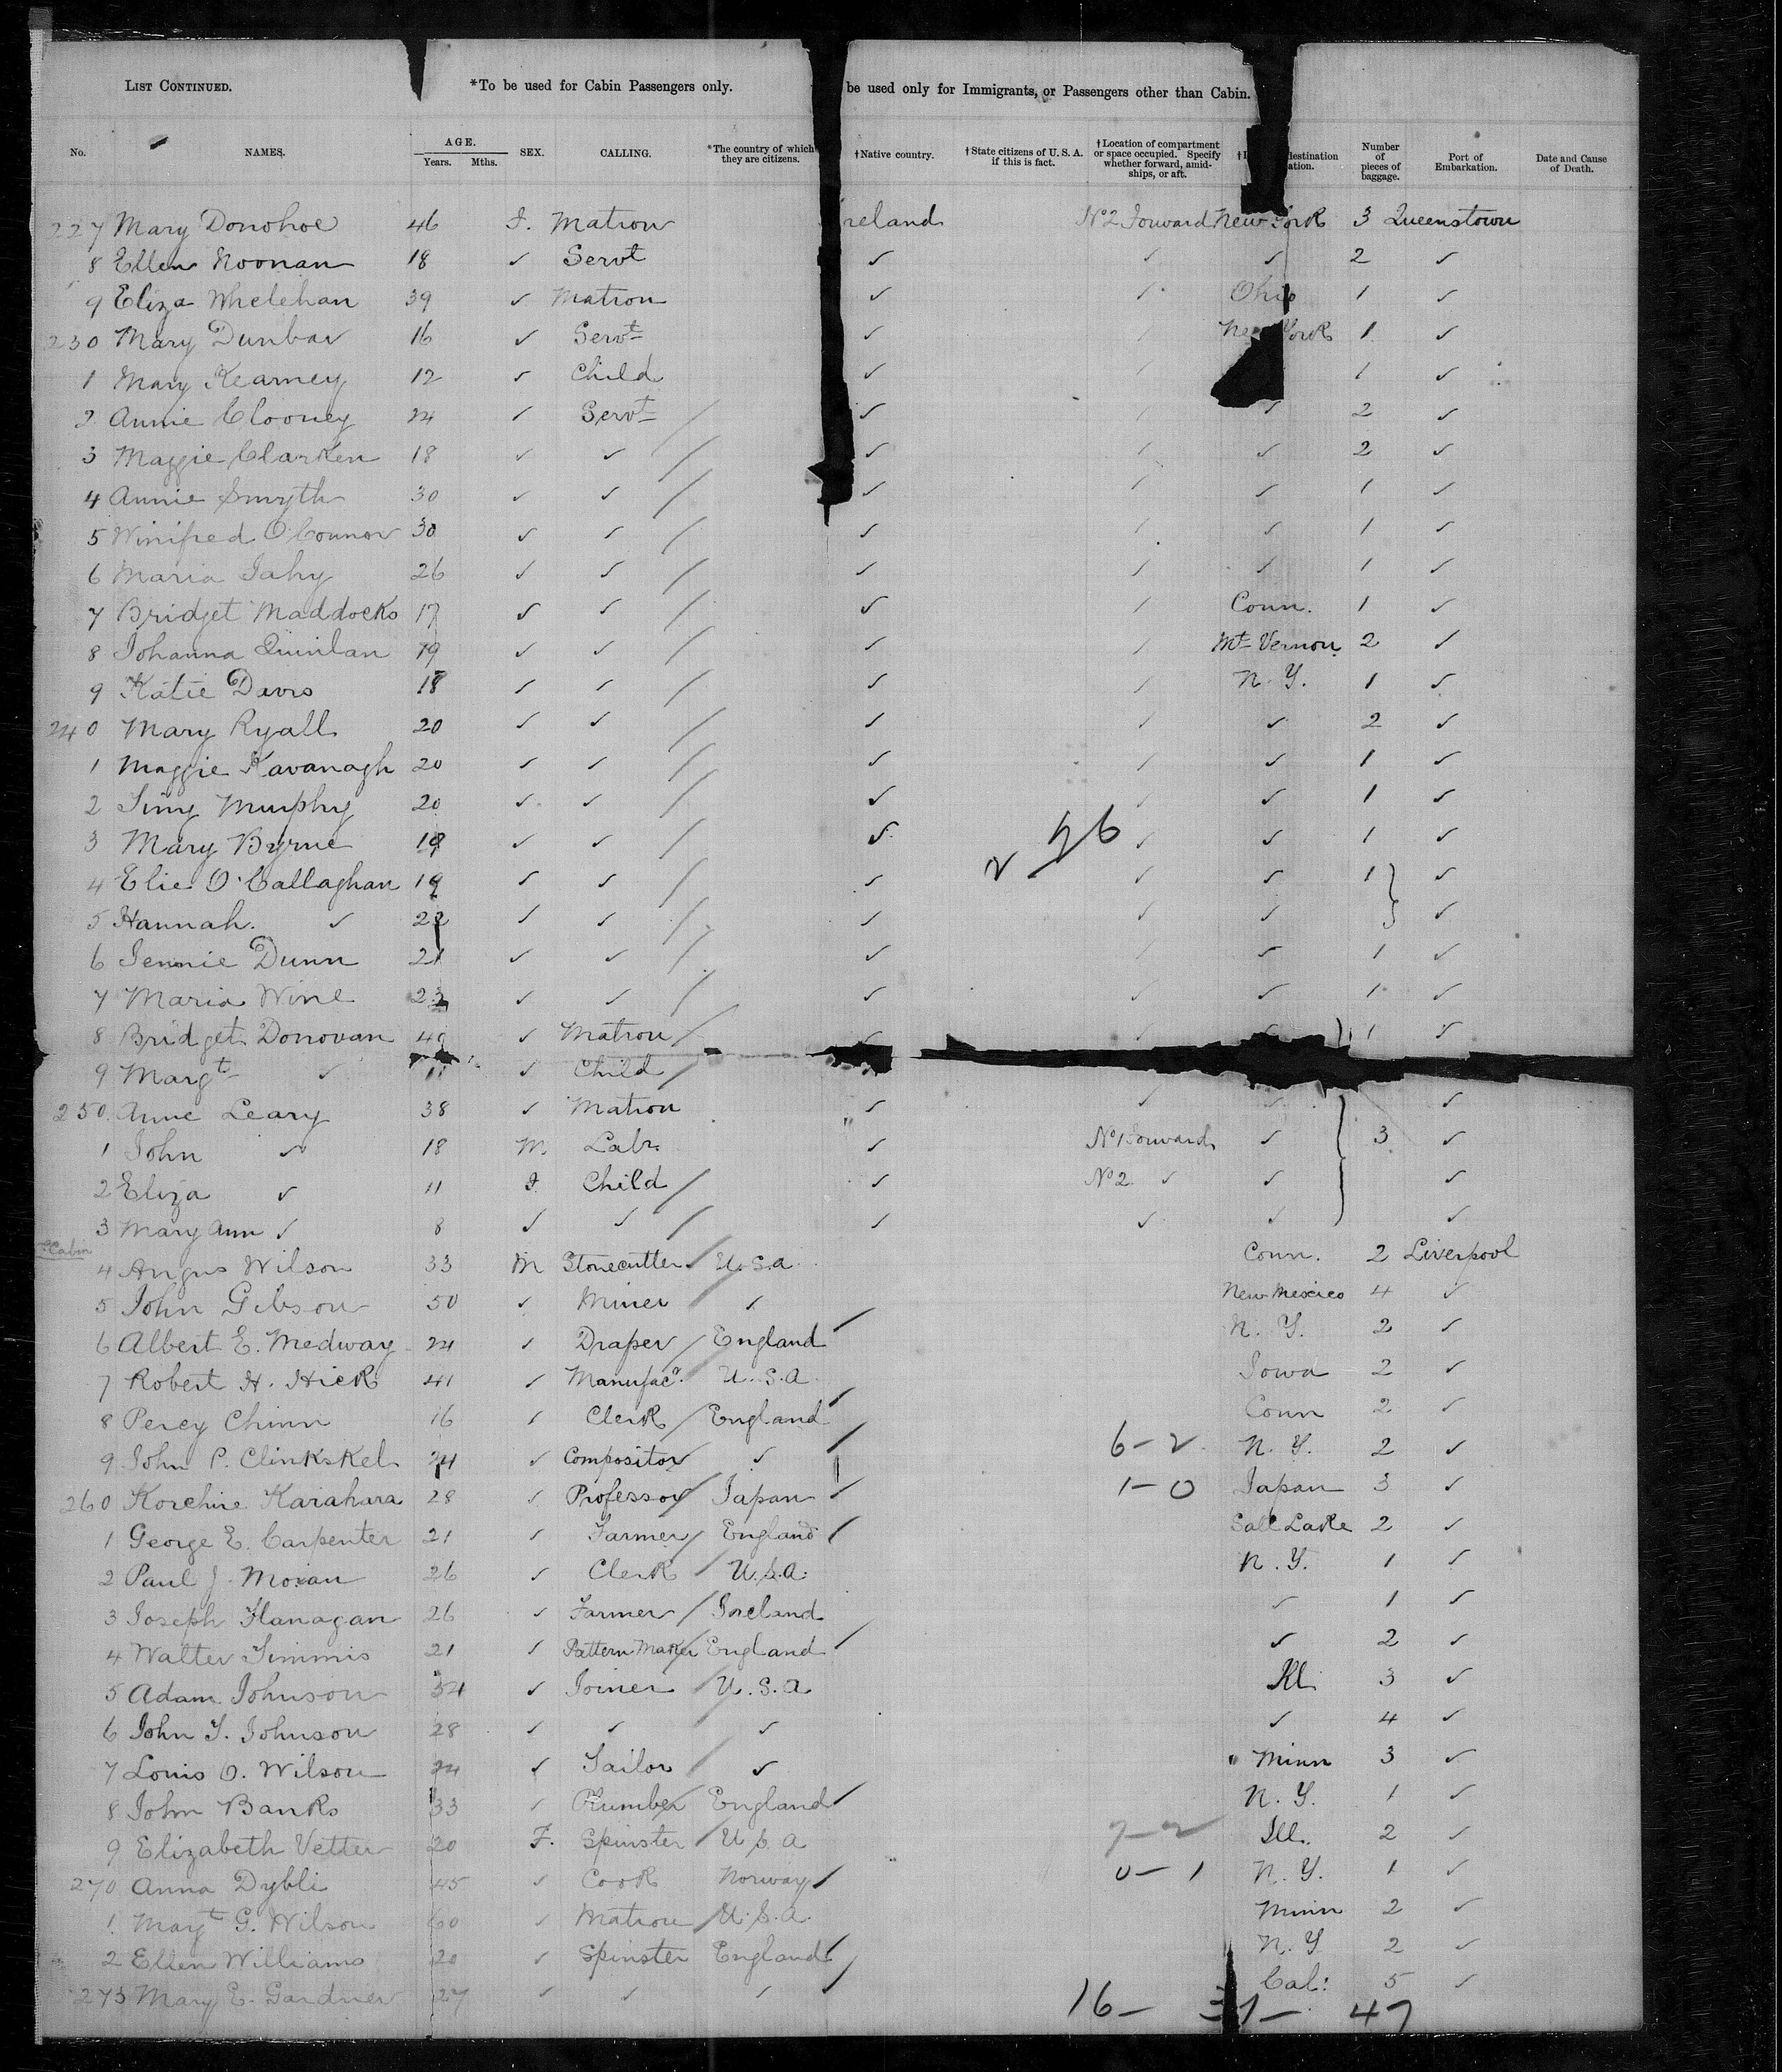 LIST CONTINUED. *To be used for Cabin Passengers only. be used only for Immigrants, or Passengers other than Cabin.
No. NAMES. AGE. Years. Mths. SEX. CALLING. *The country of which they are citizens. †Native country. †State citizens of U. S. A. if this is fact. †Location of compartment or space occupied. Specify whether forward, amidships, or aft. destination Number of pieces of baggage. Port of Embarkation. Date and Cause of Death.
227 Mary Donohoe 46 F. Matron reland No 2 Forward New York 3 Queenstown
8 Ellen Noonan 18 ✓ Servt ✓ ✓ ✓ 2 ✓
9 Eliza Whelehan 39 ✓ Matron ✓ ✓ Ohio 1 ✓
230 Mary Dunbar 16 ✓ Servt ✓ ✓ New York 1 ✓
1 Mary Kearney 12 ✓ Child ✓ ✓ 1 ✓
2 Annie Clooney 24 ✓ Servt ✓ ✓ ✓ 2 ✓
3 Maggie Clarken 18 ✓ ✓ ✓ ✓ ✓ 2 ✓
4 Annie Smyth 30 ✓ ✓ ✓ ✓ ✓ 1 ✓
5 Winifred O'Connor 30 ✓ ✓ ✓ ✓ ✓ 1 ✓
6 Maria Fahy 26 ✓ ✓ ✓ ✓ ✓ 1 ✓
7 Bridget Maddocks 17 ✓ ✓ ✓ ✓ Conn. 1 ✓
8 Johanna Quinlan 19 ✓ ✓ ✓ ✓ Mt Vernon 2 ✓
9 Katie Davis 18 ✓ ✓ ✓ ✓ N. Y. 1 ✓
240 Mary Ryall 20 ✓ ✓ ✓ ✓ ✓ 2 ✓
1 Maggie Kavanagh 20 ✓ ✓ ✓ ✓ ✓ 1 ✓
2 Murphy 20 ✓ ✓ ✓ ✓ ✓ 1 ✓
3 Mary Byrne 19 ✓ ✓ ✓ ✓ ✓ 1 ✓
4 Elie O'Callaghan 19 ✓ ✓ ✓ ✓ ✓ 1 ✓
5 Hannah ✓ 22 ✓ ✓ ✓ ✓ ✓ ✓
6 Jennie Dunn 21 ✓ ✓ ✓ ✓ ✓ 1 ✓
7 Maria Wine 23 ✓ ✓ ✓ ✓ ✓ 1 ✓
8 Bridget Donovan ✓ Matron ✓ ✓ ✓ 1 ✓
9 Margt ✓ 11 ✓ Child
250 Anne Leary 38 ✓ Matron ✓ ✓ ✓ ✓
1 John ✓ 18 M. Labr. ✓ No 1 Forward ✓ 3 ✓
2 Eliza ✓ 11 F. Child ✓ No 2 ✓ ✓ ✓
3 Mary Ann ✓ 8 ✓ ✓ ✓ ✓ ✓ ✓
Cabin
4 Angus Wilson 33 M Stonecutter U.S.A. Conn. 2 Liverpool
5 John Gibson 50 ✓ Miner ✓ New Mexico 4 ✓
6 Albert E. Medway 24 ✓ Draper England N. Y. 2 ✓
7 Robert H. Hick 41 ✓ Manufacr. U.S.A. Iowa 2 ✓
8 Percy Chinn 16 ✓ Clerk England Conn 2 ✓
9 John P. Clinkskel 24 ✓ Compositor ✓ 6-2 N. Y. 2 ✓
260 Korehire Karahara 28 ✓ Professor Japan 1-0 Japan 3 ✓
1 George E. Carpenter 21 ✓ Farmer England Salt Lake 2 ✓
2 Paul J. Moran 26 ✓ Clerk U.S.A. N. Y. 1 ✓
3 Joseph Flanagan 26 ✓ Farmer Ireland ✓ 1 ✓
4 Walter Timmis 21 ✓ Pattern Maker England ✓ 2 ✓
5 Adam Johnson 34 ✓ Joiner U.S.A 3 ✓
6 John T. Johnson 28 ✓ ✓ ✓ ✓ 4 ✓
7 Louis O. Wilson 24 ✓ Tailor ✓ Minn 3 ✓
8 John Banks 33 ✓ Plumber England N. Y. 1 ✓
9 Elizabeth Vetter 20 F. Spinster U.S.A 7-2 Ill. 2 ✓
270 Anna Dybli 45 ✓ Cook Norway 0-1 N. Y. 1 ✓
1 Mayt G. Wilson 60 ✓ Matron U.S.A. Minn 2 ✓
2 Ellen Williams 20 ✓ Spinster England N. Y 2 ✓
273 Mary E. Gardner 27 ✓ ✓ ✓ Cal: 5 ✓
16 - 31 - 47